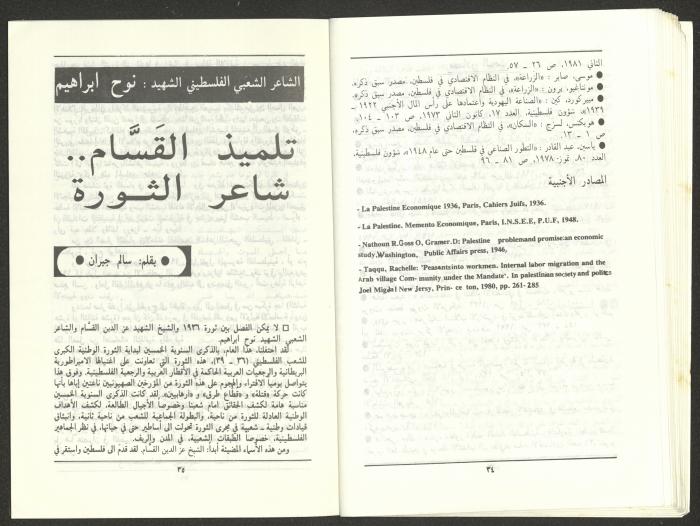 الثاني ١٩٨١، ص ٢٦ - ٥٧.
● موسى، صابر: «الزراعة»، في النظام الاقتصادي في فلسطين، مصدر سبق ذكره.
● مونتاغيو، برون: «الزراعة»، في النظام الاقتصادي في فلسطين، مصدر سبق ذكره.
● ميركورد، كين: «الصناعة اليهودية واعتمادها على رأس المال الأجنبي ١٩٢٢ -
١٩٣٩»، شؤون فلسطينية، العدد ١٧، كانون الثاني ١٩٧٣، ص ١٠٣ - ١٠٤.
● هوبكنس، لسرج: «السكان»، في النظام الاقتصادي في فلسطين، مصدر سبق ذكره،
ص ١ - ١٣.
● ياسين، عبد القادر: «التطور الصناعي في فلسطين حتى عام ١٩٤٨»، شؤون فلسطينية،
العدد ٨٠، تموز ١٩٧٨، ص ٨١ - ٩٦
المصادر الأجنبية
- La Palestine Economique 1936, Paris, Cahiers Juifs, 1936.
- La Palestine. Memento Economique, Paris, I.N.S.E.E, P.U.F, 1948.
- Nathoun R.Goss O, Gramer.D: Palestine problemand promise:an economic
study,Washington, Public Affairs press, 1946,
- Taqqu, Rachelle: 'Peasants into workmen. Internal labor migration and the
Arab village Com- munity under the Mandate'. In palestinian society and politics
Joel Migdal New Jersy, Prin- ce ton, 1980, pp. 261- 285
٣٤
الشاعر الشعبي الفلسطيني الشهيد: نوح ابراهيم
تلميذ القَسَّام..
شاعر الثــورة
● بقلم: سالم جبران ●
□ لا يمكن الفصل بين ثورة ١٩٣٦ والشيخ الشهيد عز الدين القسّام والشاعر
الشعبي الشهيد نوح ابراهيم.
لقد احتفلنا، هذا العام، بالذكرى السنوية الخمسين لبداية الثورة الوطنية الكبرى
للشعب الفلسطيني (٣٦ - ٣٩)، هذه الثورة التي تعاونت على اغتيالها الامبراطورية
البريطانية والرجعيات العربية الحاكمة في الأقطار العربية والرجعية الفلسطينية. وفوق هذا
يتواصل يوميا الافتراء والهجوم على هذه الثورة من المؤرخين الصهيونيين ناعتين إياها بأنها
كانت حركة «قتلة» و «قطّاع طرق» و «ارهابيين». لقد كانت الذكرى السنوية الخمسين
مناسبة هامة لكشف الحقائق أمام شعبنا وخصوصاً الأجيال الطالعة، لكشف الأهداف
الوطنية العادلة للثورة من ناحية، والبطولة الجماعية للشعب من ناحية ثانية، وانبثاق
قيادات وطنية - شعبية في مجرى الثورة تحولت الى أساطير حتى في حياتها، في نظر الجماهير
الفلسطينية، خصوصاً الطبقات الشعبية، في المدن والريف.
ومن هذه الأسماء المضيئة أبداً: الشيخ عز الدين القسّام. لقد قدم الى فلسطين واستقر في
٣٥